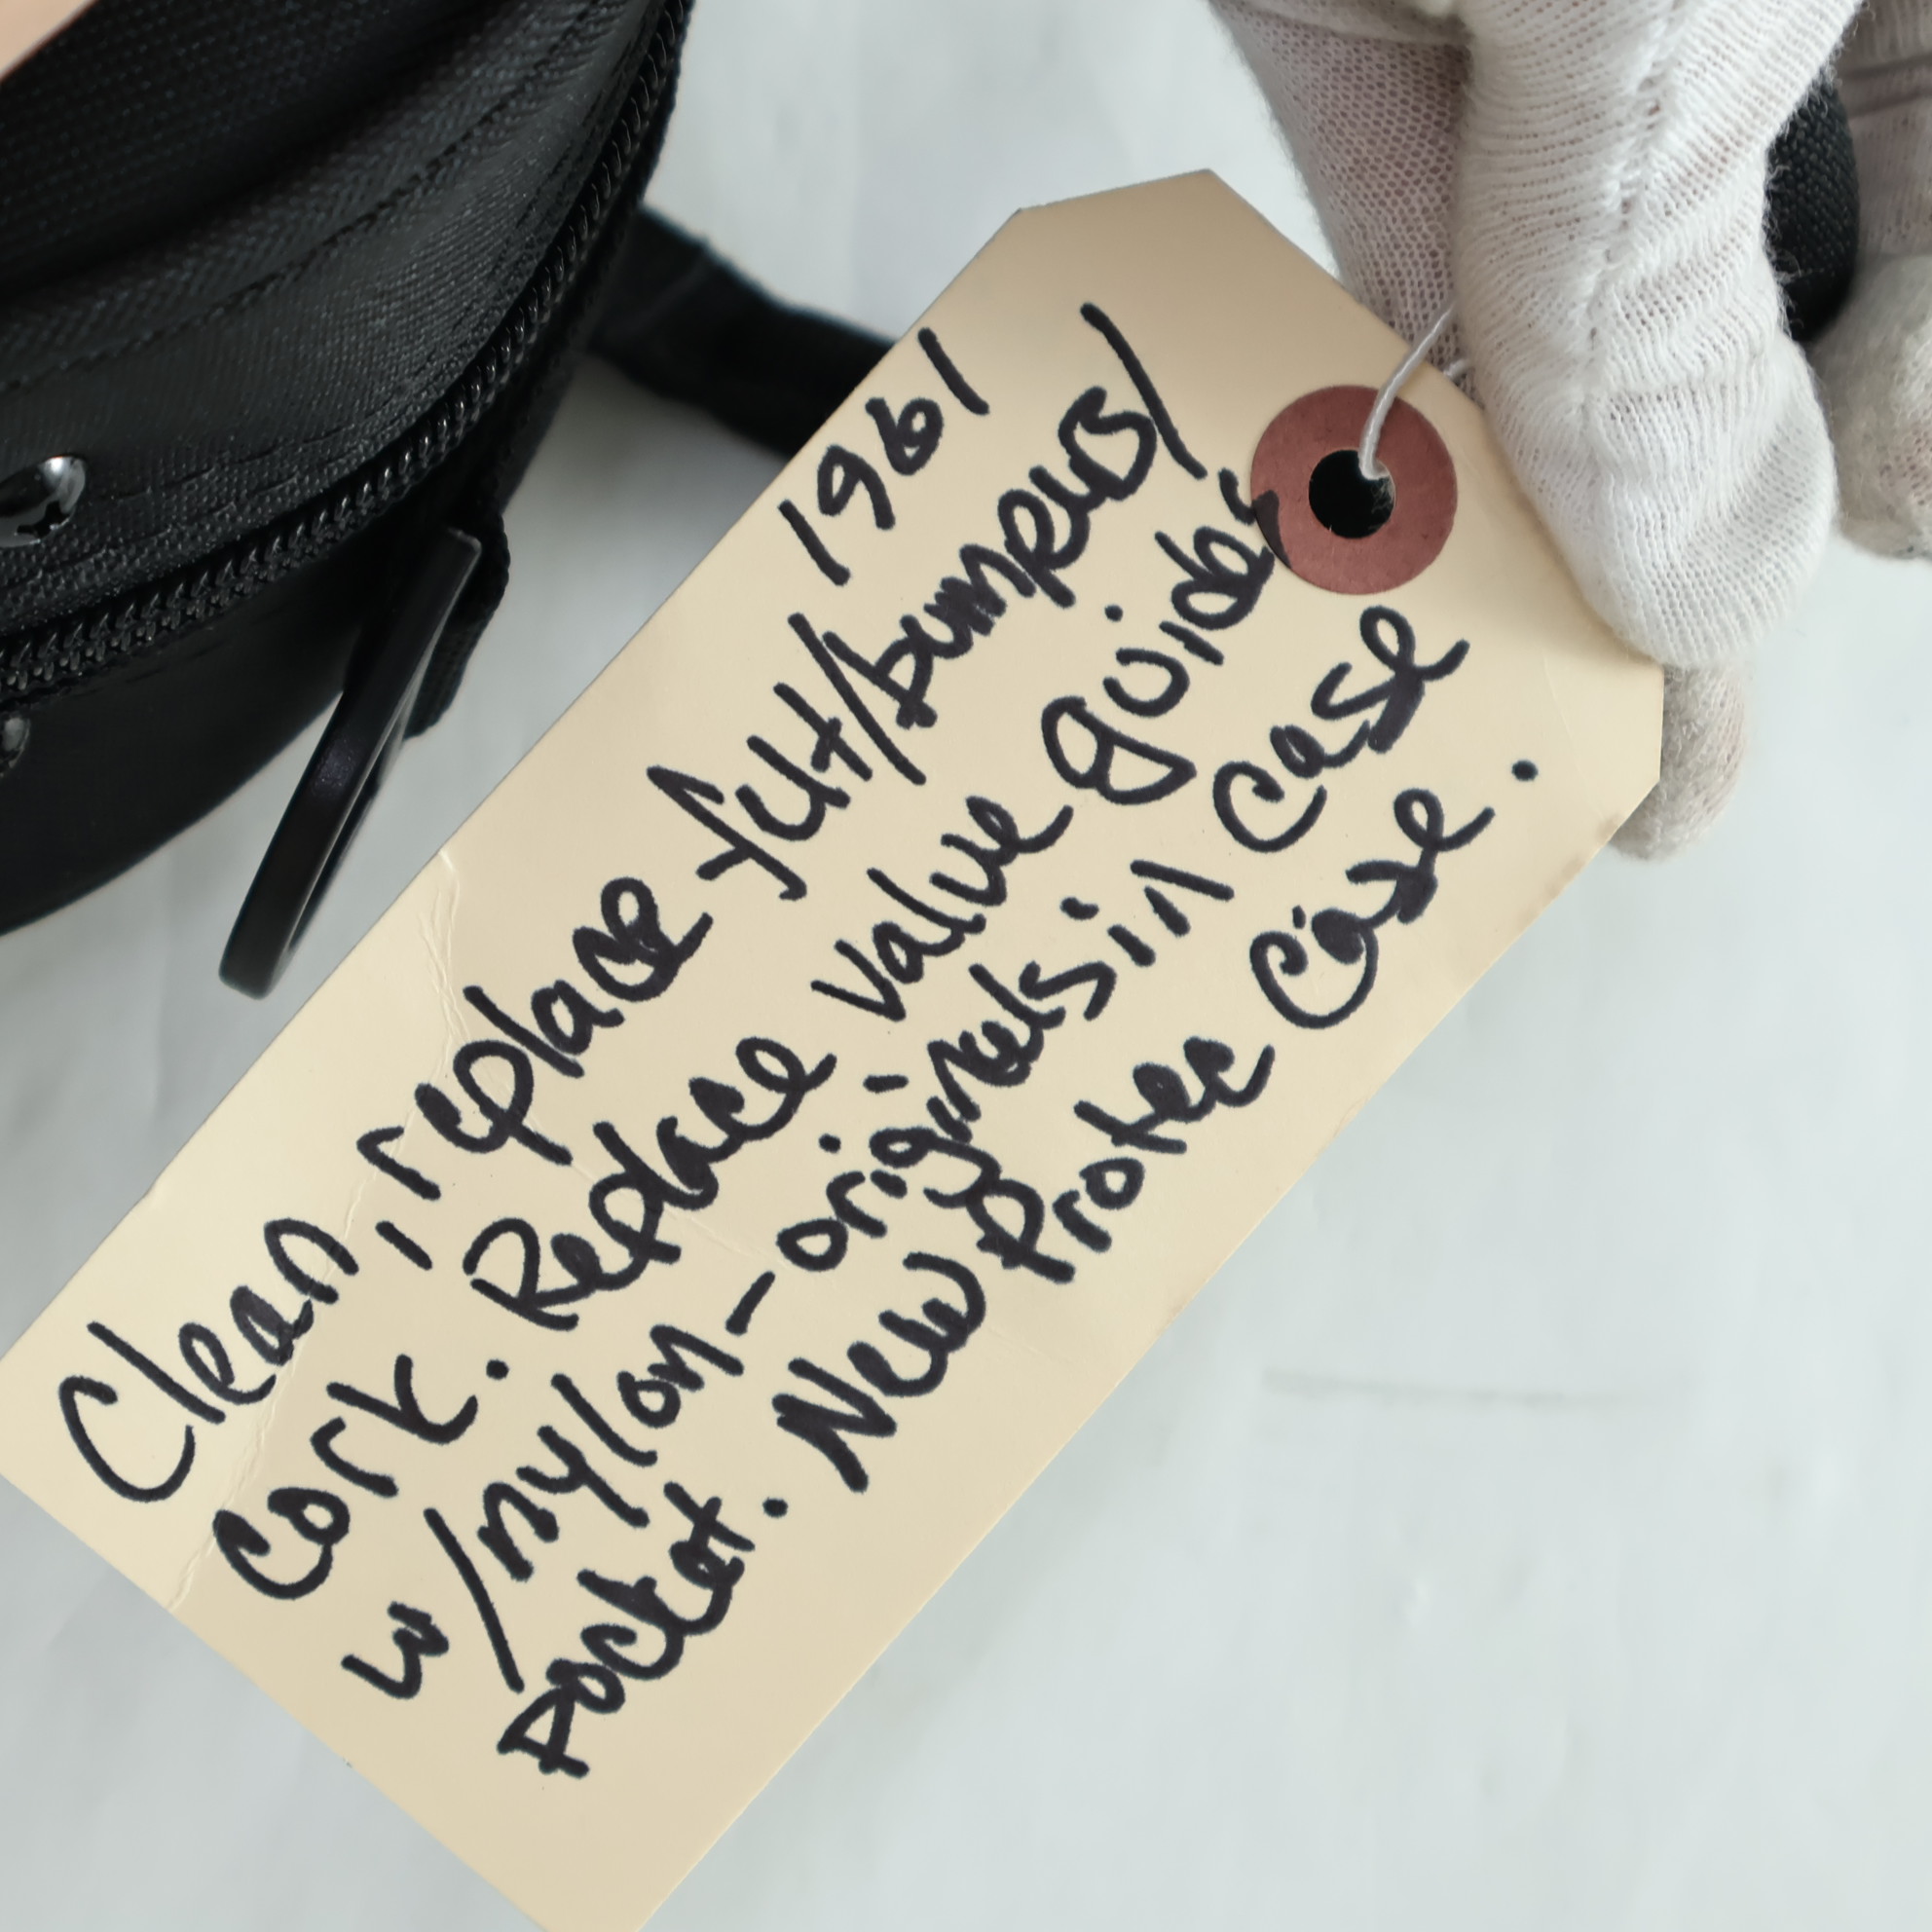 1961
Clean, replace felt/bumpers/
cork. Replace value guides
w/nylon-originals in case
pocket. New Protec Case.